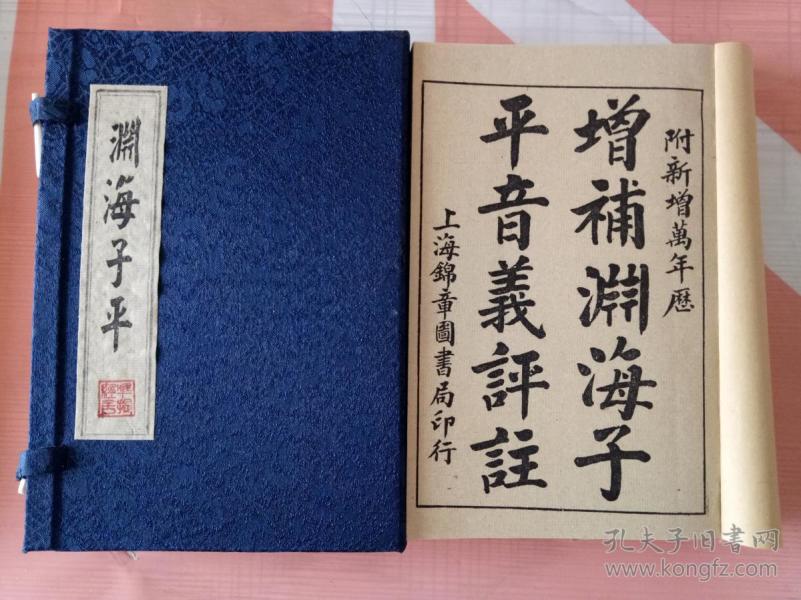 淵海子平
附新增萬年歷
增補淵海子
平音義評註
上海錦章圖書局印行
孔夫子旧书网
www.kongfz.com